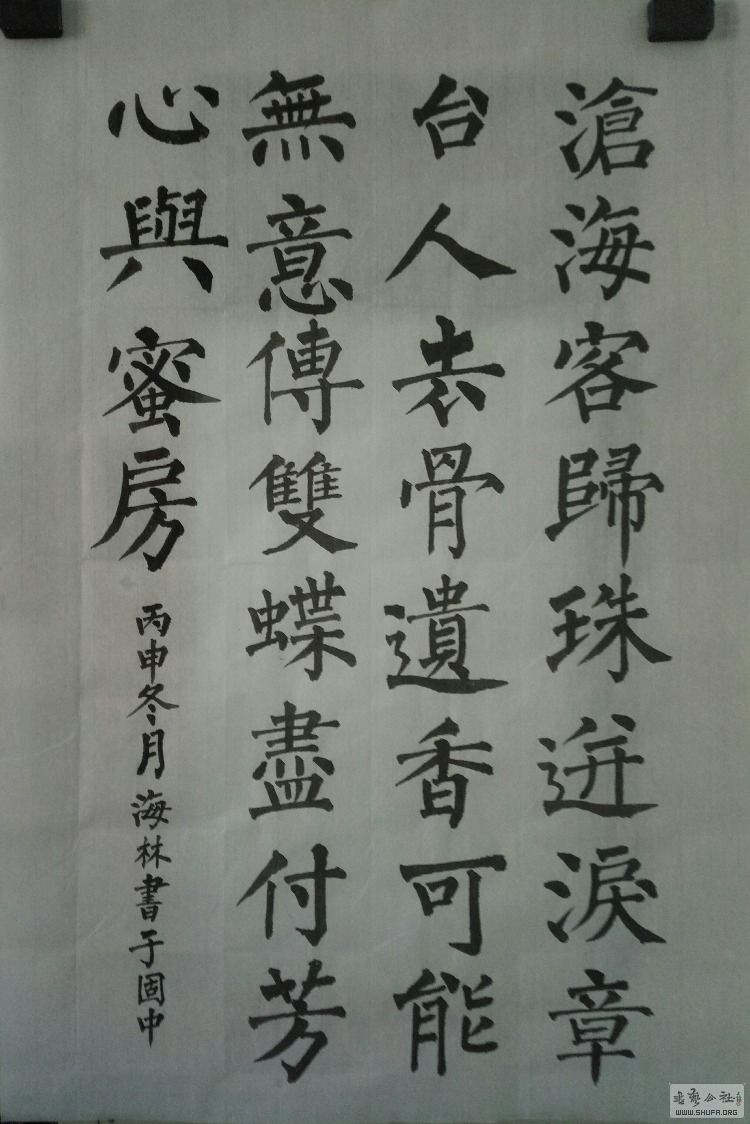 滄海客歸珠迸淚章
台人去骨遺香可能
無意傳雙蝶盡付芳
心與蜜房
丙申冬月海林書于固中
WWW.SHUFA.ORG